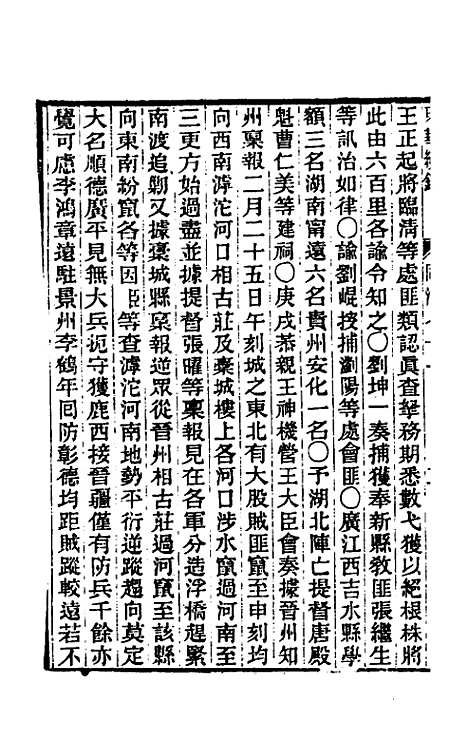 王正起將臨淸等處匪類認眞查拏務期悉數弋獲以絕根株將
此由六百里各諭令知之〇劉坤一奏捕獲奉新縣敎匪張繼生
等訊治如律〇諭劉崐按捕瀏陽等處會匪〇廣江西吉水縣學
額三名湖南甯遠六名貴州安化一名〇予湖北陣亡提督唐殿
魁曹仁美等建祠〇庚戌恭親王神機營王大臣會奏據晉州知
州稟報二月二十五日午刻城之東北有大股賊匪竄至申刻均
向西南滹沱河口相古莊及槀城樓上各河口涉水竄過河南至
三更方始過盡並據提督張曜等稟報見在各軍分造浮橋趕緊
南渡追勦又據槀城縣稟報逆眾從晉州相古莊過河竄至該縣
向東南紛竄各等因臣等查滹沱河南地勢平衍逆蹤趨向莫定
大名順德廣平見無大兵扼守獲鹿西接晉疆僅有防兵千餘亦
覺可慮李鴻章遠駐景州李鶴年囘防彰德均距賊蹤較遠若不